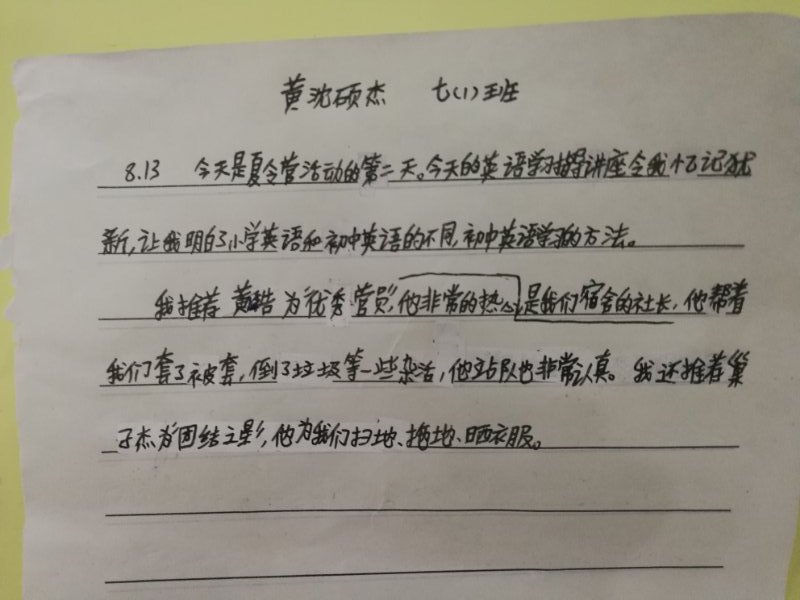 黄沈硕杰 七(1)班
8.13 今天是夏令营活动的第二天。今天的英语学习指导讲座令我忆记犹
新,让我明白了小学英语和初中英语的不同,初中英语学习的方法。
我推荐黄皓为优秀营员,他非常的热心,是我们宿舍的社长,他帮着
我们套了被套,倒了垃圾等一些杂活,他站队也非常认真。我还推荐巢
子杰为团结之影,他为我们扫地、拖地、晒衣服。